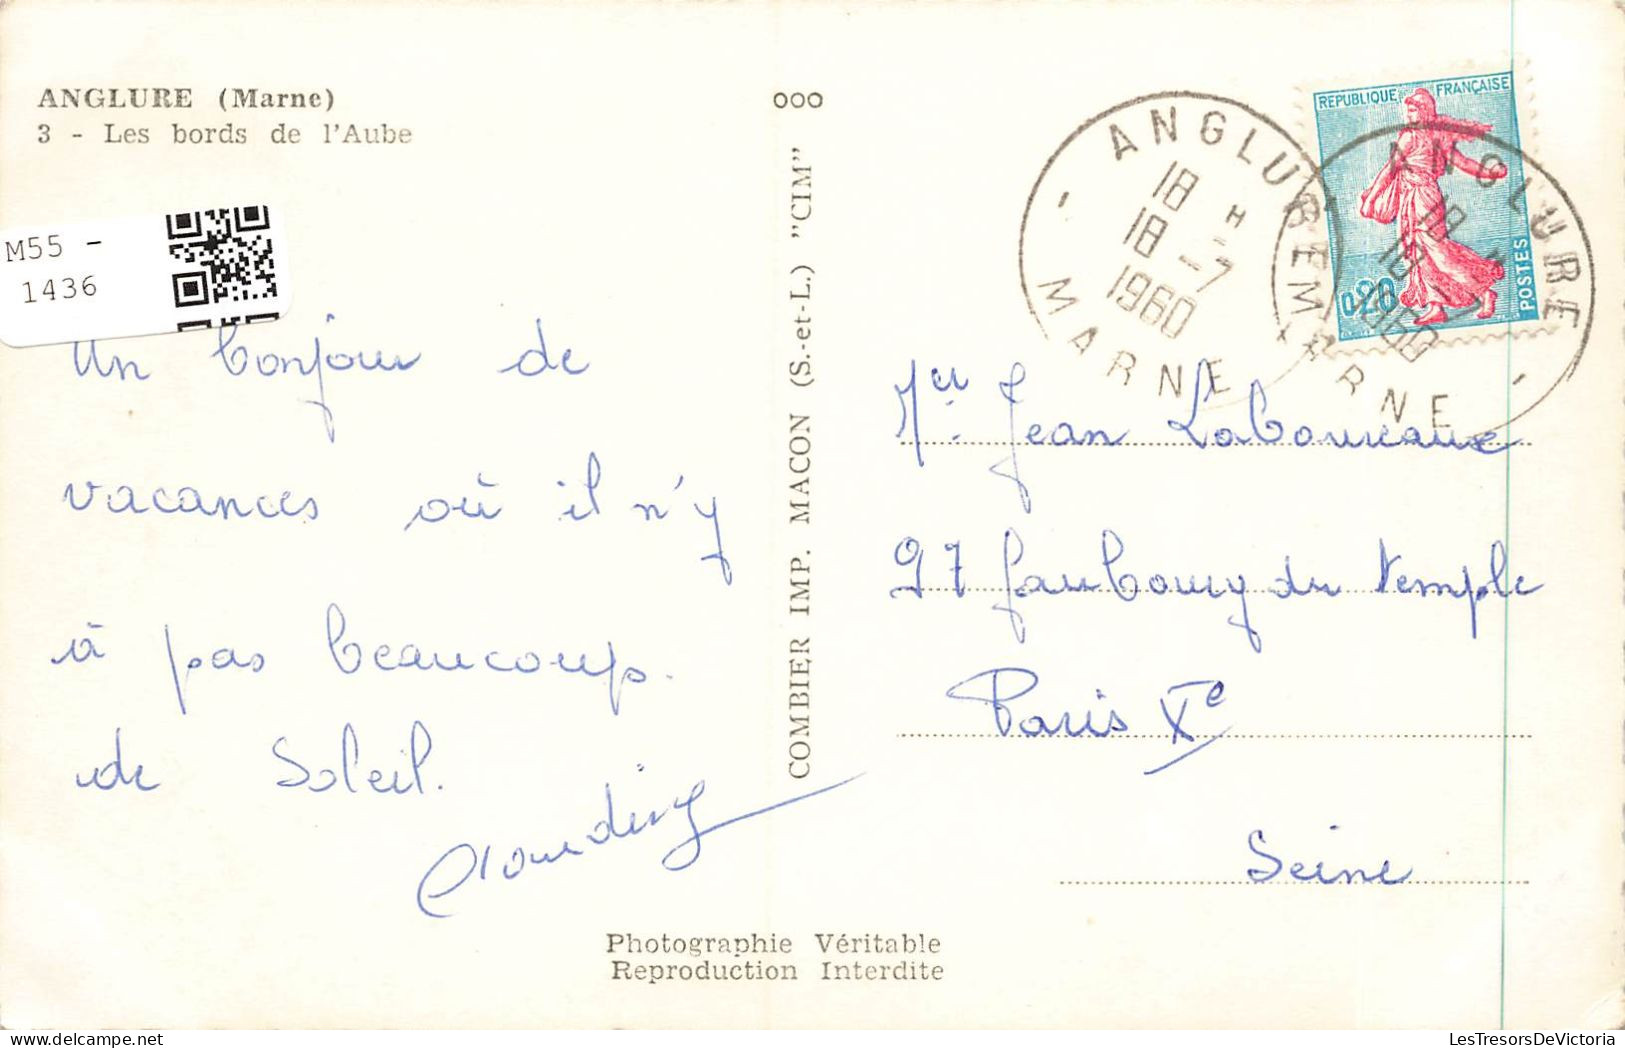 ANGLURE (Marne)
3 - Les bords de l'Aube
M55 -
1436
Un bonjour de
vacances où il n'y
à pas beaucoup.
de Soleil.
COMBIER IMP. MACON (S.-et-L.) "CIM"
ooo
ANGLURE
18 H
18 -7
1960
MARNE
REPUBLIQUE FRANÇAISE
0,20
POSTES
ANGLURE
18 H
18 -7
1960
MARNE
Mer Jean Laboureaux
97 faubourg du temple
Paris Xe
Seine
Photographie Véritable
Reproduction Interdite
LesTresorsDeVictoria